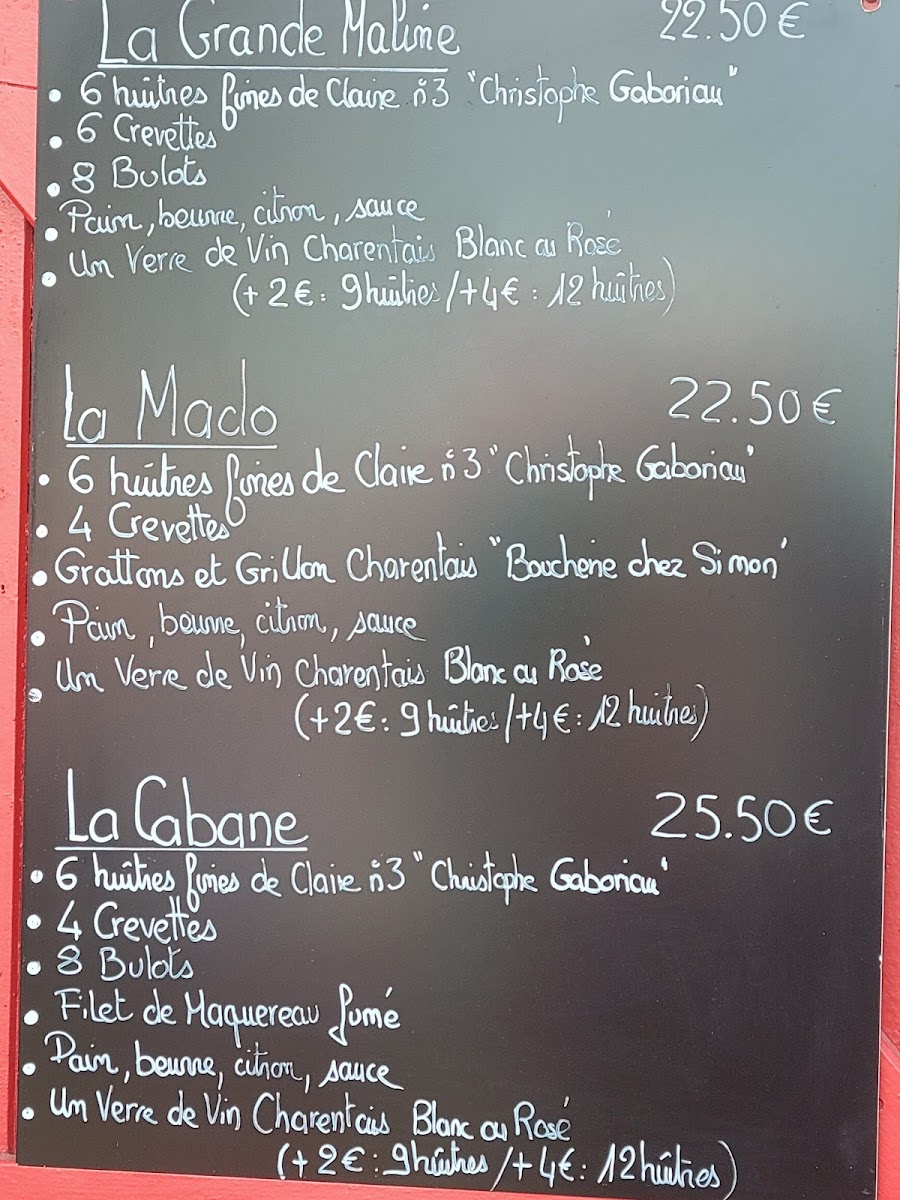 La Grande Maline 22.50 €
• 6 huîtres fines de Claire n°3 "Christophe Gaboriau"
• 6 Crevettes
• 8 Bulots
• Pain, beurre, citron, sauce
• Un Verre de Vin Charentais Blanc ou Rosé
(+ 2€ : 9 huîtres / +4€ : 12 huîtres)
La Maclo 22.50 €
• 6 huîtres fines de Claire n°3 "Christophe Gaboriau"
• 4 Crevettes
• Grattons et Grillon Charentais "Boucherie chez Simon"
• Pain, beurre, citron, sauce
• Un Verre de Vin Charentais Blanc ou Rosé
(+2€ : 9 huîtres / +4€ : 12 huîtres)
La Cabane 25.50€
• 6 huîtres fines de Claire n°3 "Christophe Gaboriau"
• 4 Crevettes
• 8 Bulots
• Filet de Maquereau fumé
• Pain, beurre, citron, sauce
• Un Verre de Vin Charentais Blanc ou Rosé
(+ 2€ : 9 huîtres / + 4€ : 12 huîtres)